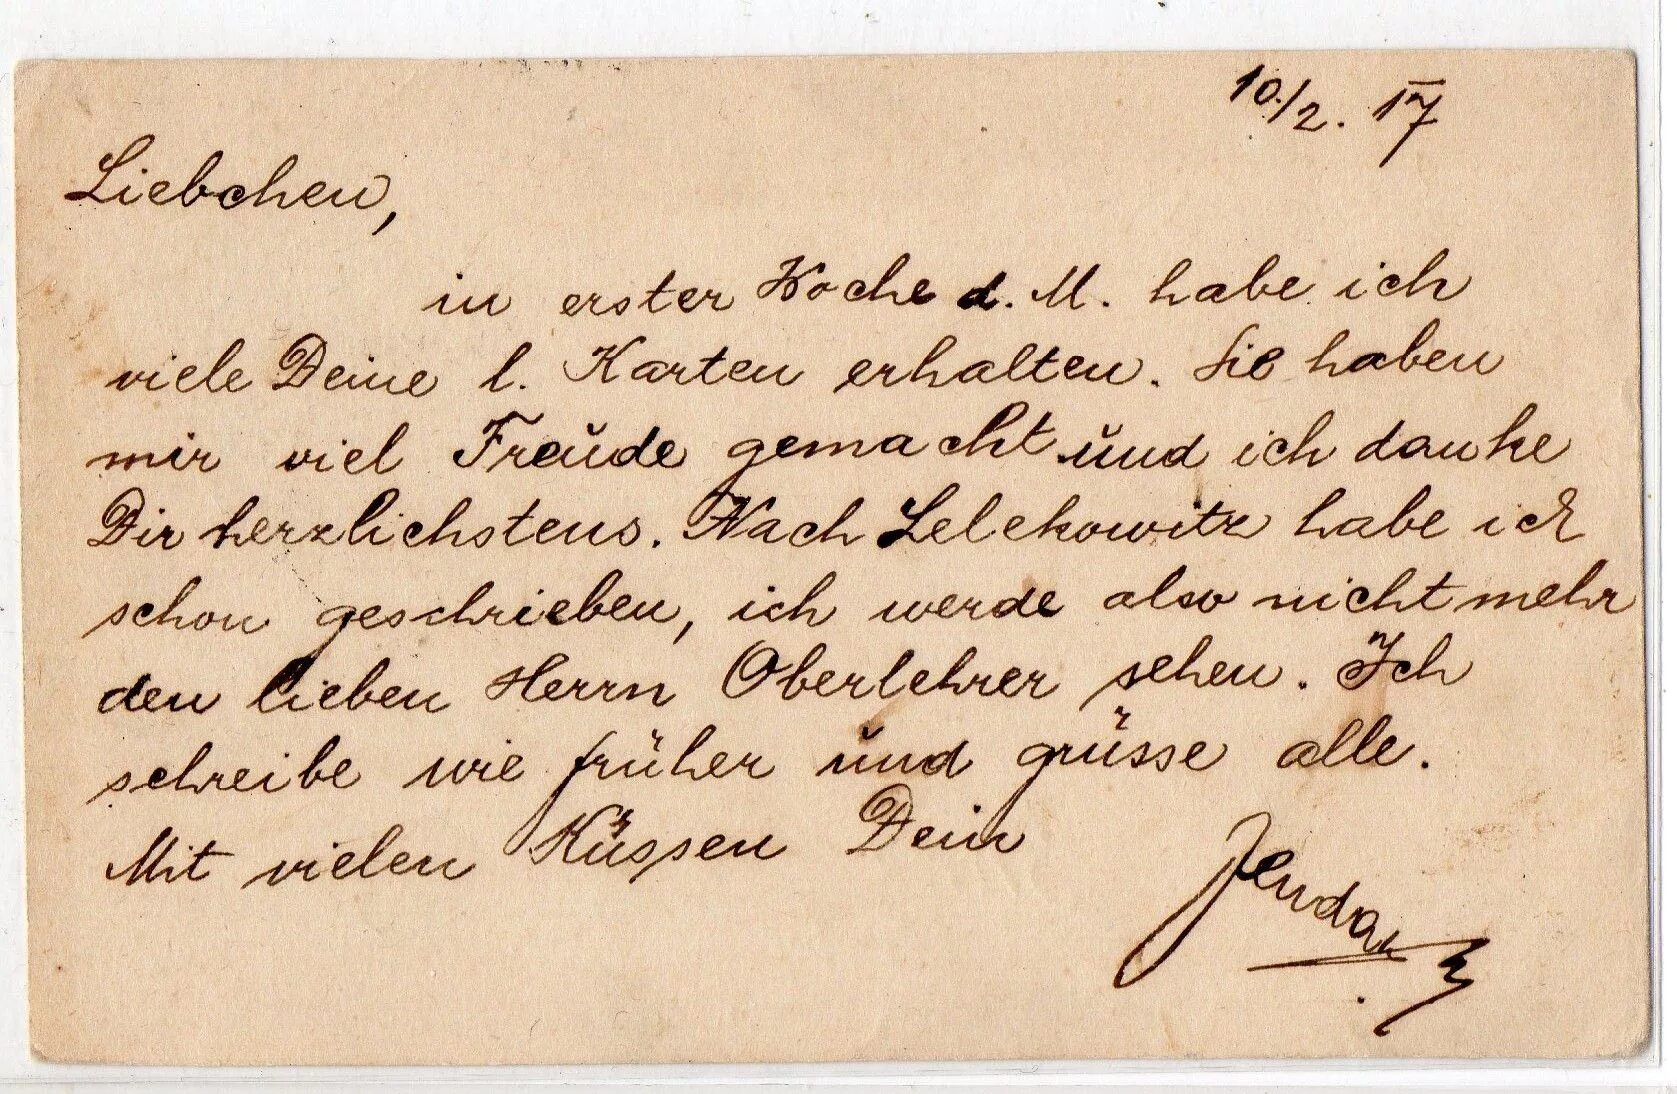 10./2. 17
Liebchen,
in erster Woche d. M. habe ich
viele Deine l. Karten erhalten. Sie haben
mir viel Freude gemacht und ich danke
Dir herzlichstens. Nach Lelekowitz habe ich
schon geschrieben, ich werde also nicht mehr
den lieben Herrn Oberlehrer sehen. Ich
schreibe wie früher und grüsse alle.
Mit vielen Küssen Dein
Jenda